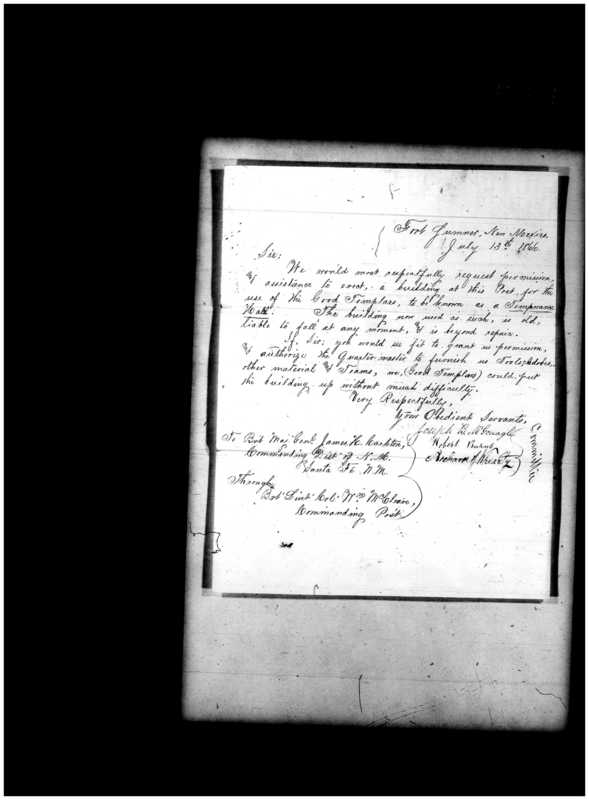 Fort Sumner, New Mexico,
July 13th 1866
Sir;
We would most respectfully request permission,
& assistance to erect, a building at this Post, for the
use of the Good Templars, to be known as a Temperance
Hall. The building now used as such, is old,
liable to fall at any moment, & is beyond repair.
If, Sir; you would see fit to grant us permission,
& authorize the Quartermaster to furnish us Tools, Adobes,
other material & Teams, we, (Good Templars) could put
the building up without much difficulty.
Very Respectfully,
Your Obedient Servants,
Joseph
Robert
Richard
Committee
To Bvt Maj Genl James H. Carleton,
Commanding Dist of N.M.
Santa Fe N.M.
Through
Bvt Lieut Col. Wm McCleave,
Commanding Post.